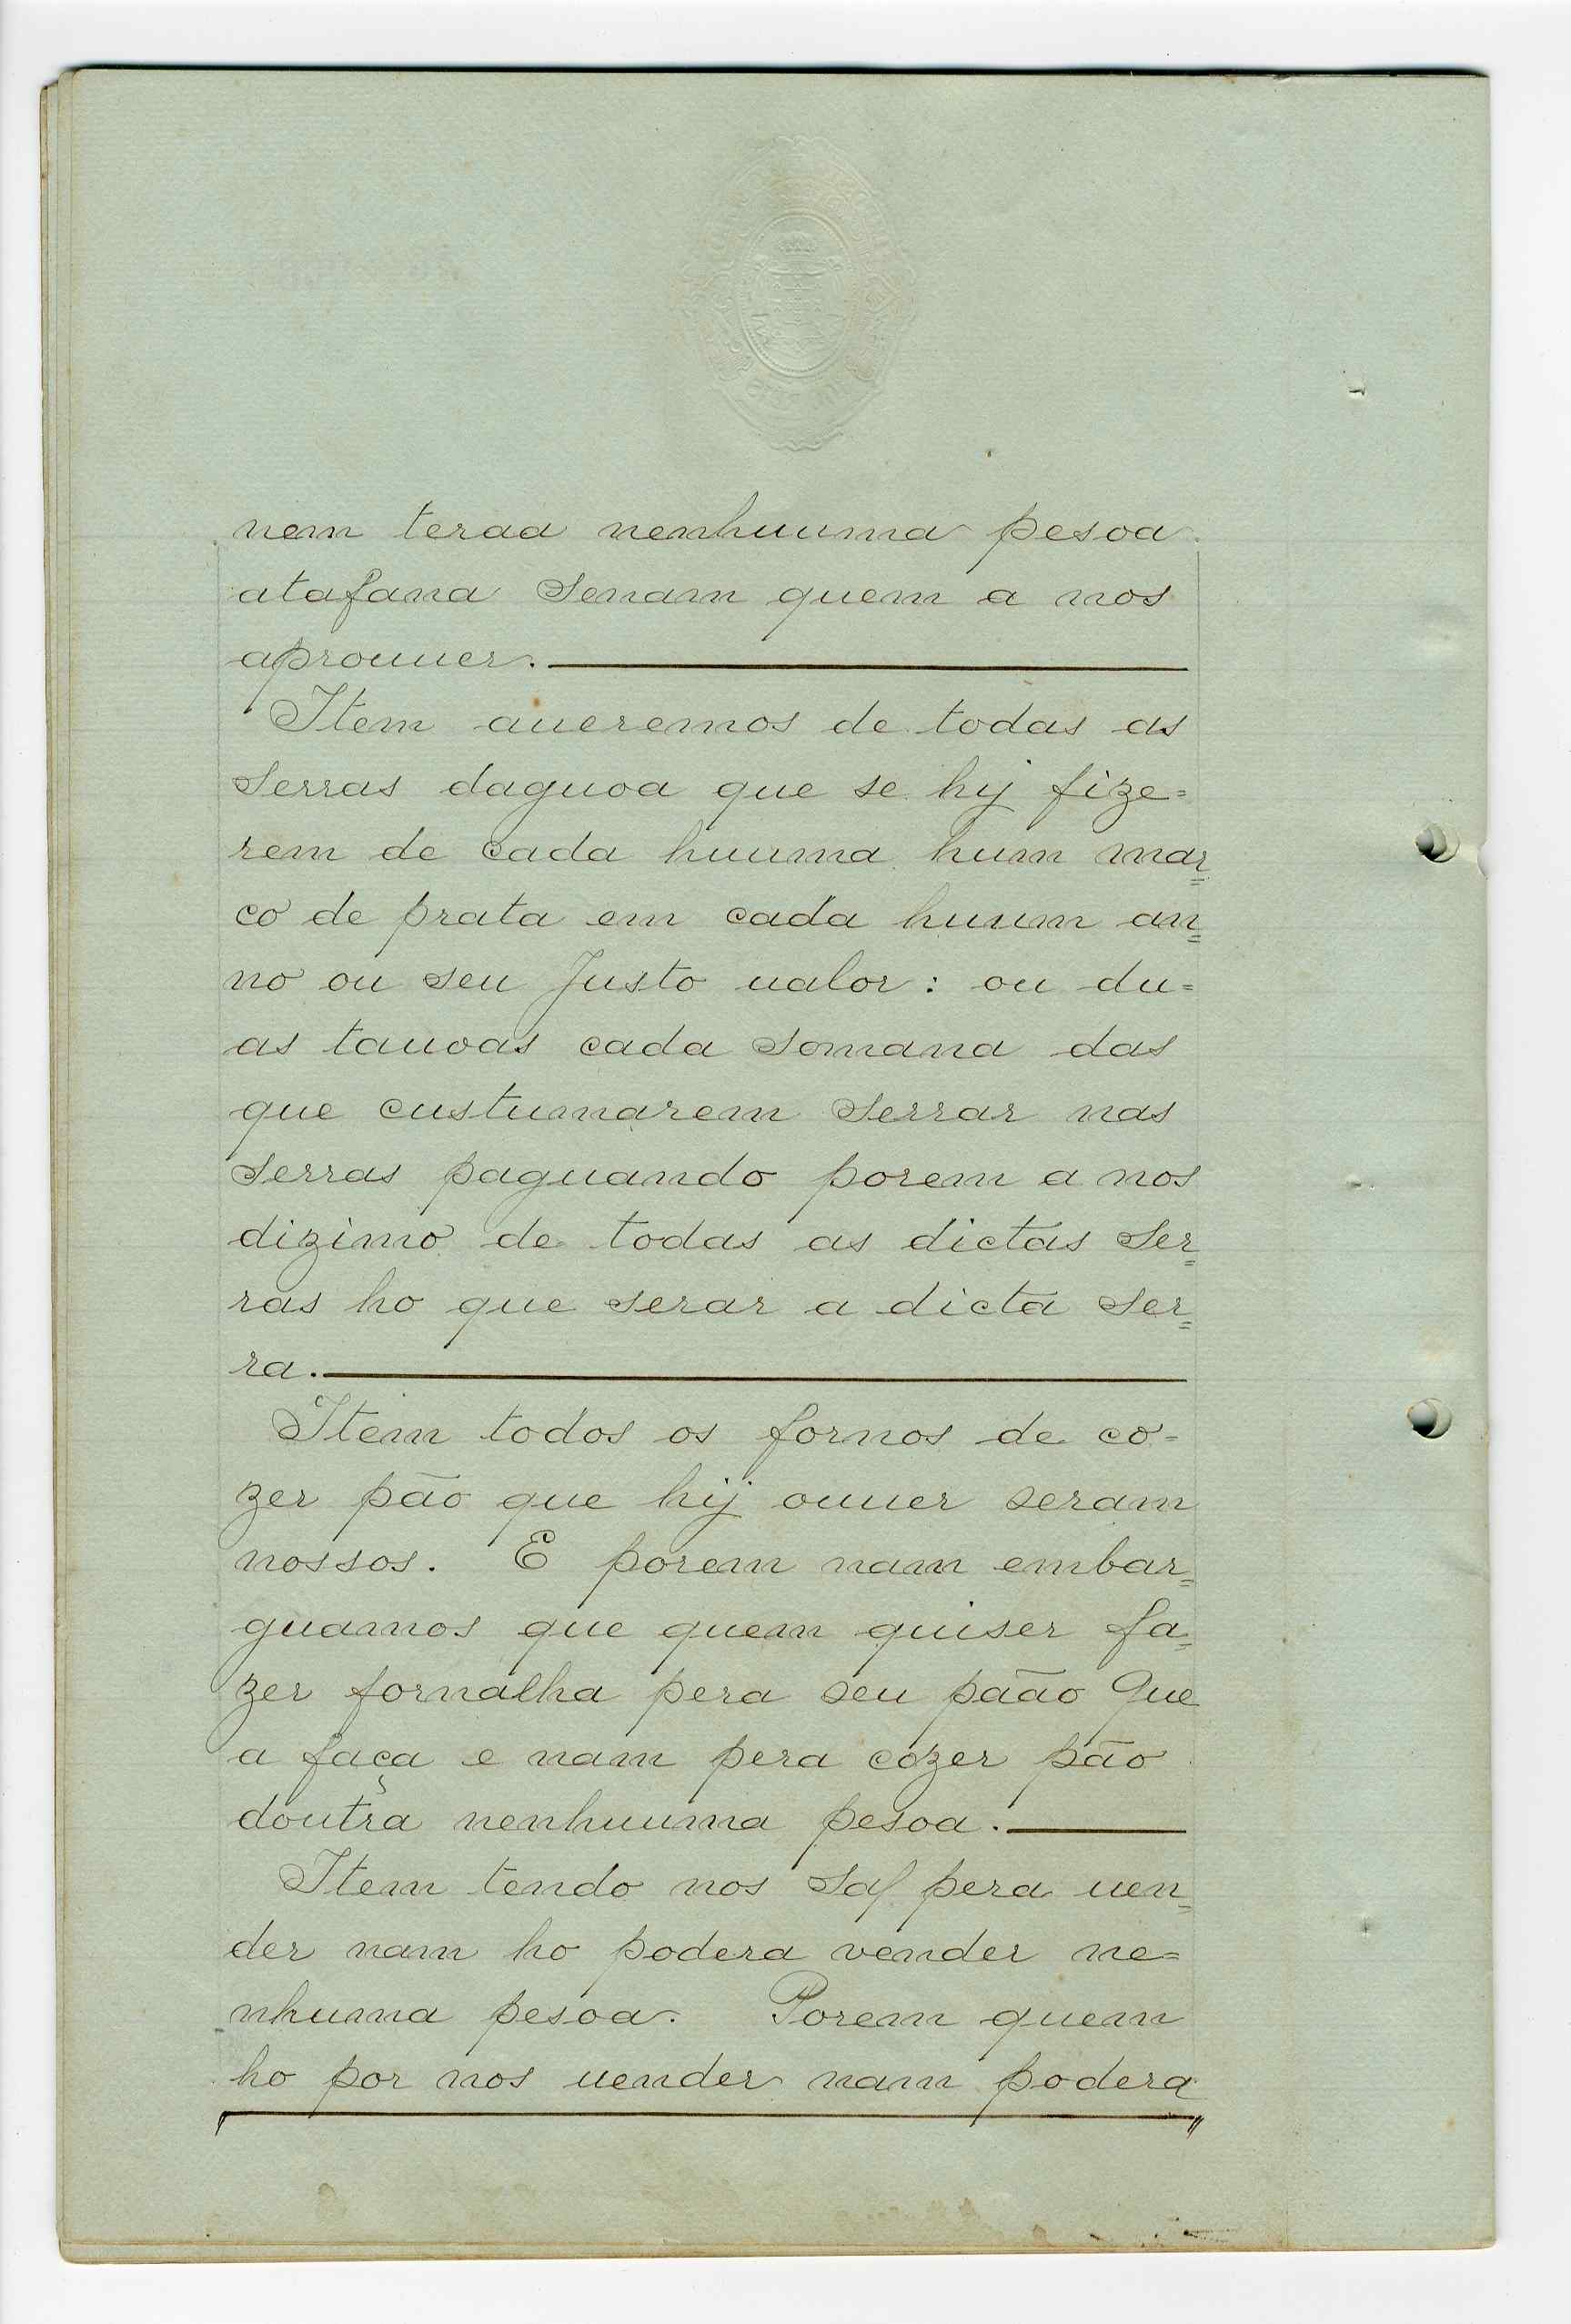 nem teraa nenhuuma pesoa
atafana Senam quem a nos
aprouuer.
Item aueremos de todas as
Serras daguoa que se hij fize=
rem de cada huuma hum mar=
co de prata em cada huum an=
no ou seu Justo ualor: ou du=
as tauoas cada Somana das
que custumarem Serrar nas
Serras paguando porem a nos
dizimo de todas as dictas Ser=
ras ho que serar a dicta Ser=
ra.
Item todos os fornos de co-
zer pão que hij ouuer seram
nossos. E porem nam embar=
guamos que quem quiser fa=
zer fornalha pera seu pãao Que
a faça e nam pera cozer pão
doutra nenhuuma pesoa.
Item tendo nos Sal pera uen=
der nam ho podera vender ne=
nhuma pesoa. Porem quem
ho por nos uender nam podera